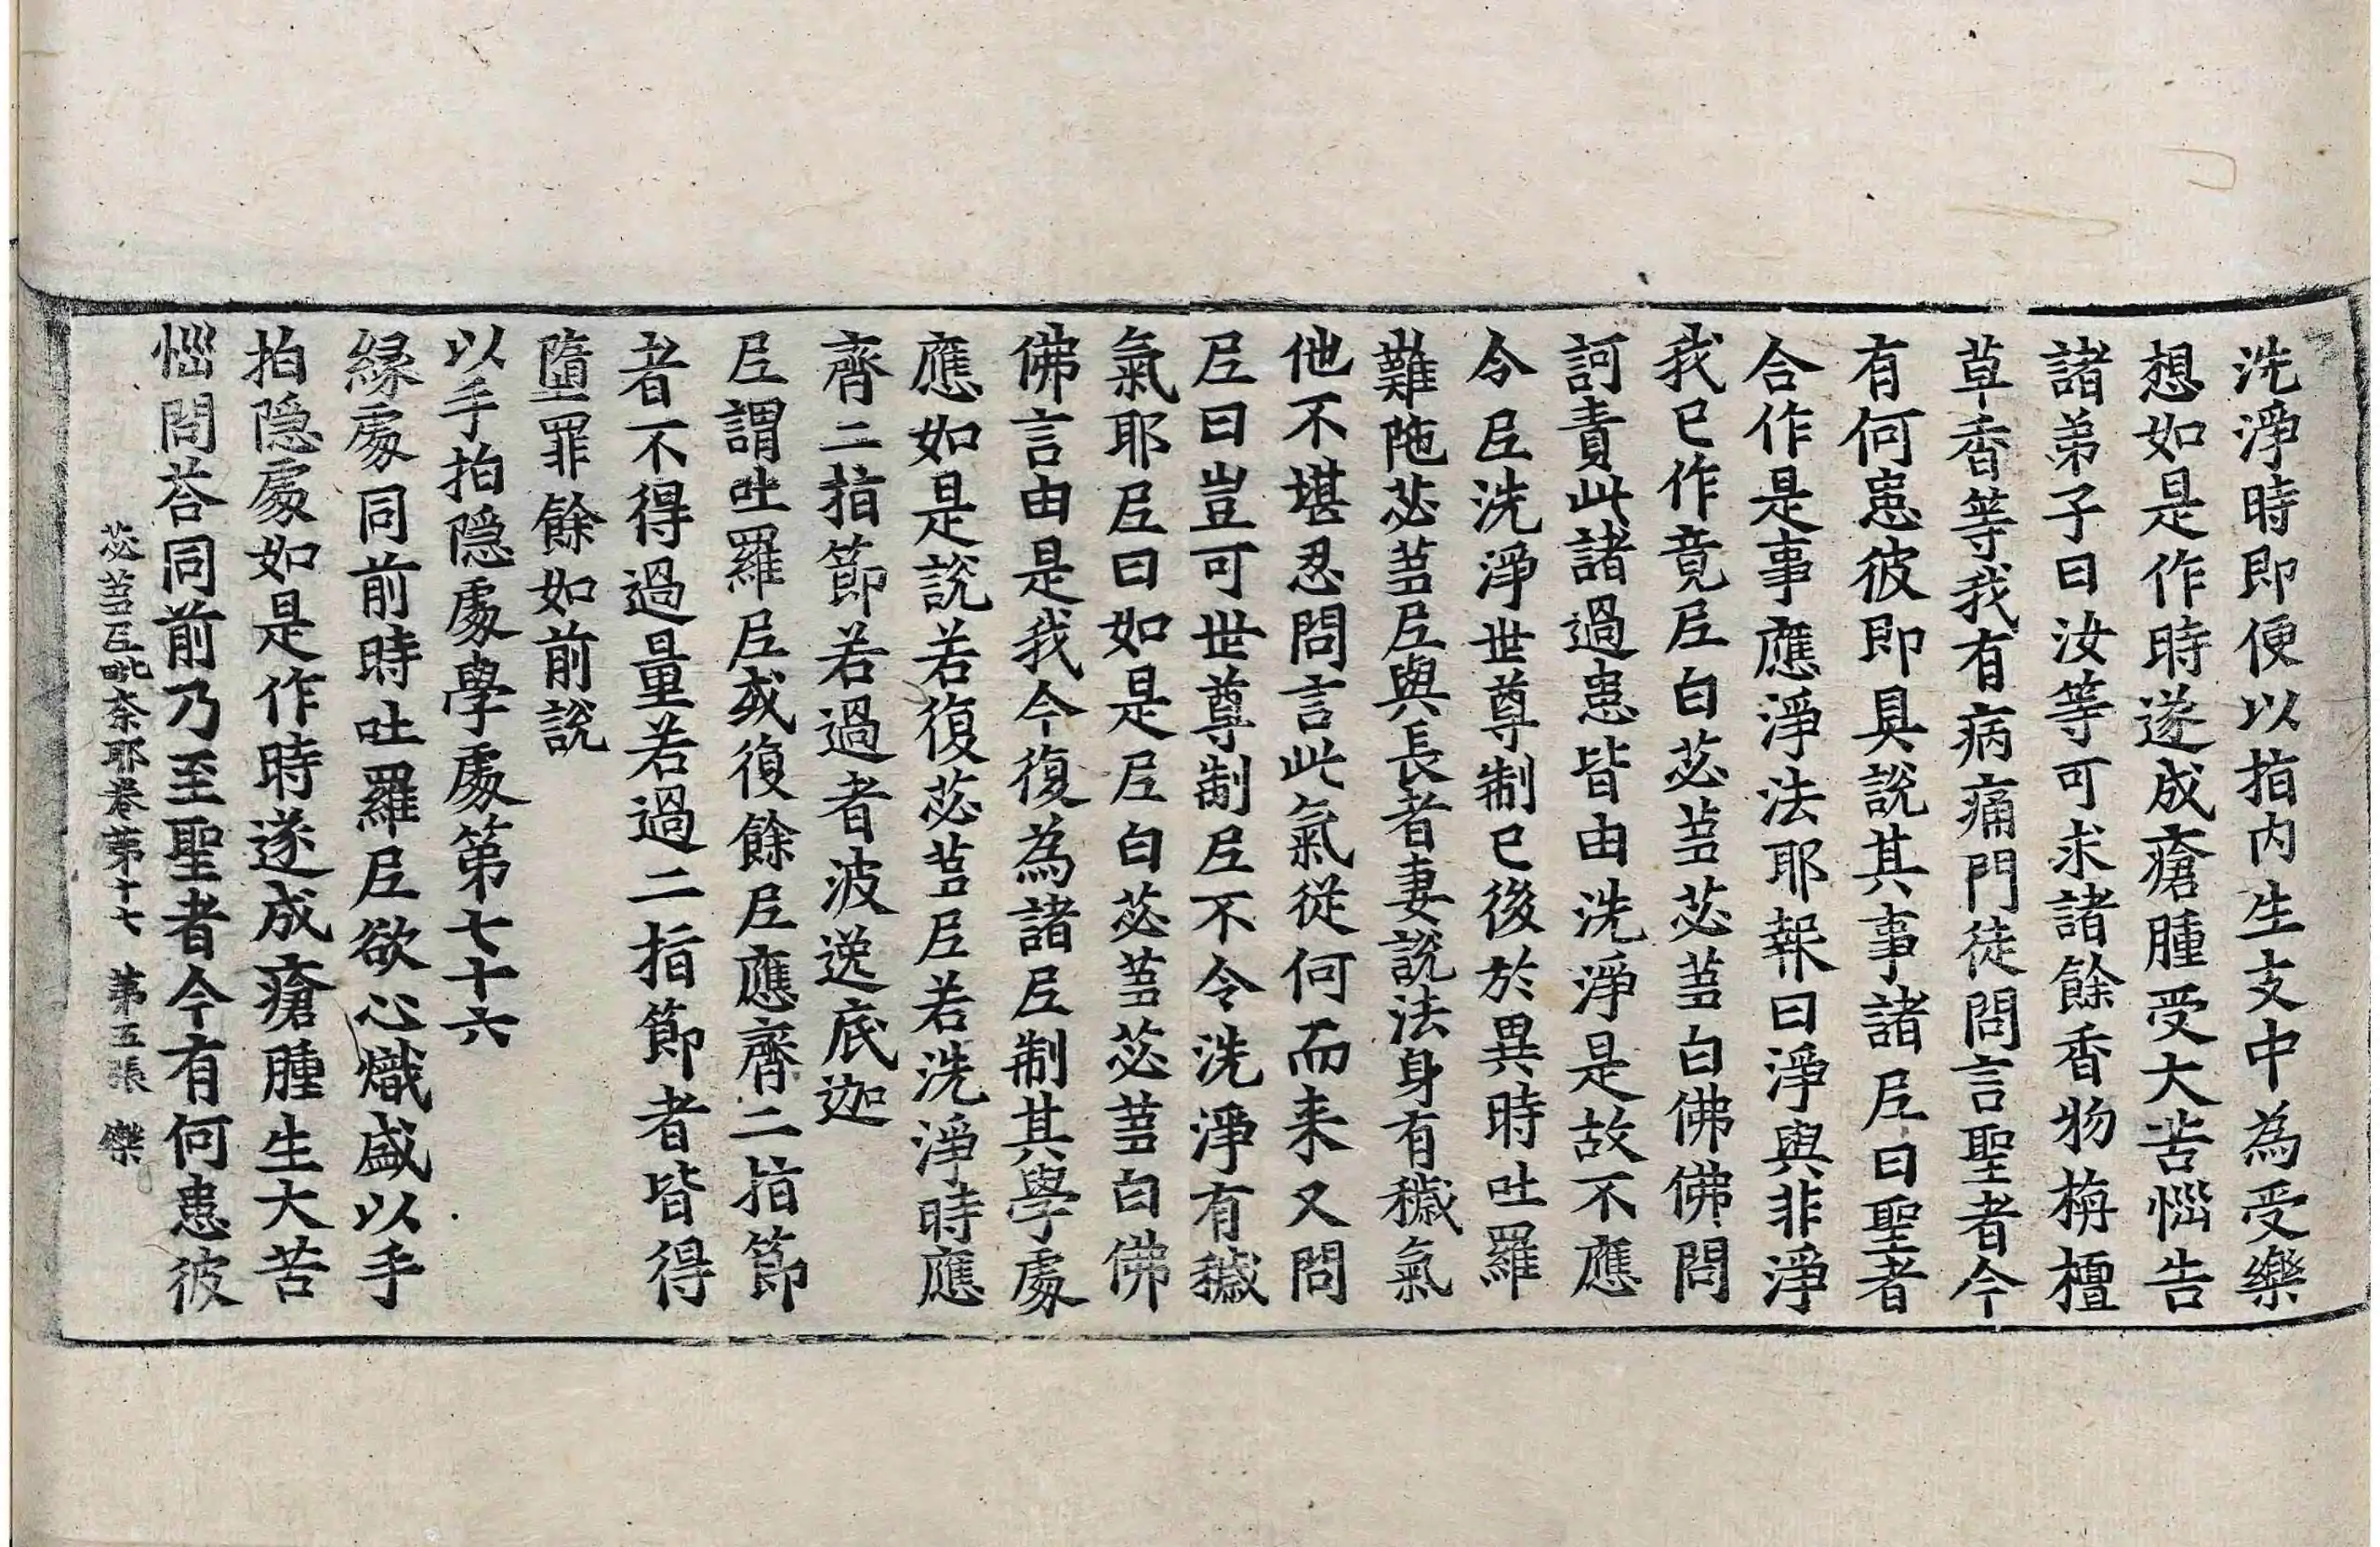 洗淨時即便以指内生支中為受樂
想如是作時遂成瘡腫受大苦惱告
諸弟子曰汝等可求諸餘香物栴檀
草香等我有病痛門徒問言聖者今
有何患彼即具説其事諸尼曰聖者
合作是事應淨法耶報曰淨與非淨
我已作竟尼白苾芻苾芻白佛佛問
訶責此諸過患皆由洗淨是故不應
令尼洗淨世尊制已後於異時吐羅
難陁苾芻尼與長者妻説法身有穢氣
他不堪忍問言此氣從何而来又問
尼曰豈可世尊制尼不令洗淨有穢
氣耶尼曰如是尼白苾芻苾芻白佛
佛言由是我今復為諸尼制其學處
應如是説若復苾芻尼若洗淨時應
齊二指節若過者波逸底迦
尼謂吐羅尼或復餘尼應齊二指節
者不得過量若過二指節者皆得
墮罪餘如前説
以手拍隠處學處第七十六
縁處同前時吐羅尼欲心熾盛以手
拍隠處如是作時遂成瘡腫生大苦
惱問荅同前乃至聖者今有何患彼
苾芻尼毗奈耶卷第十七 第五張 樂